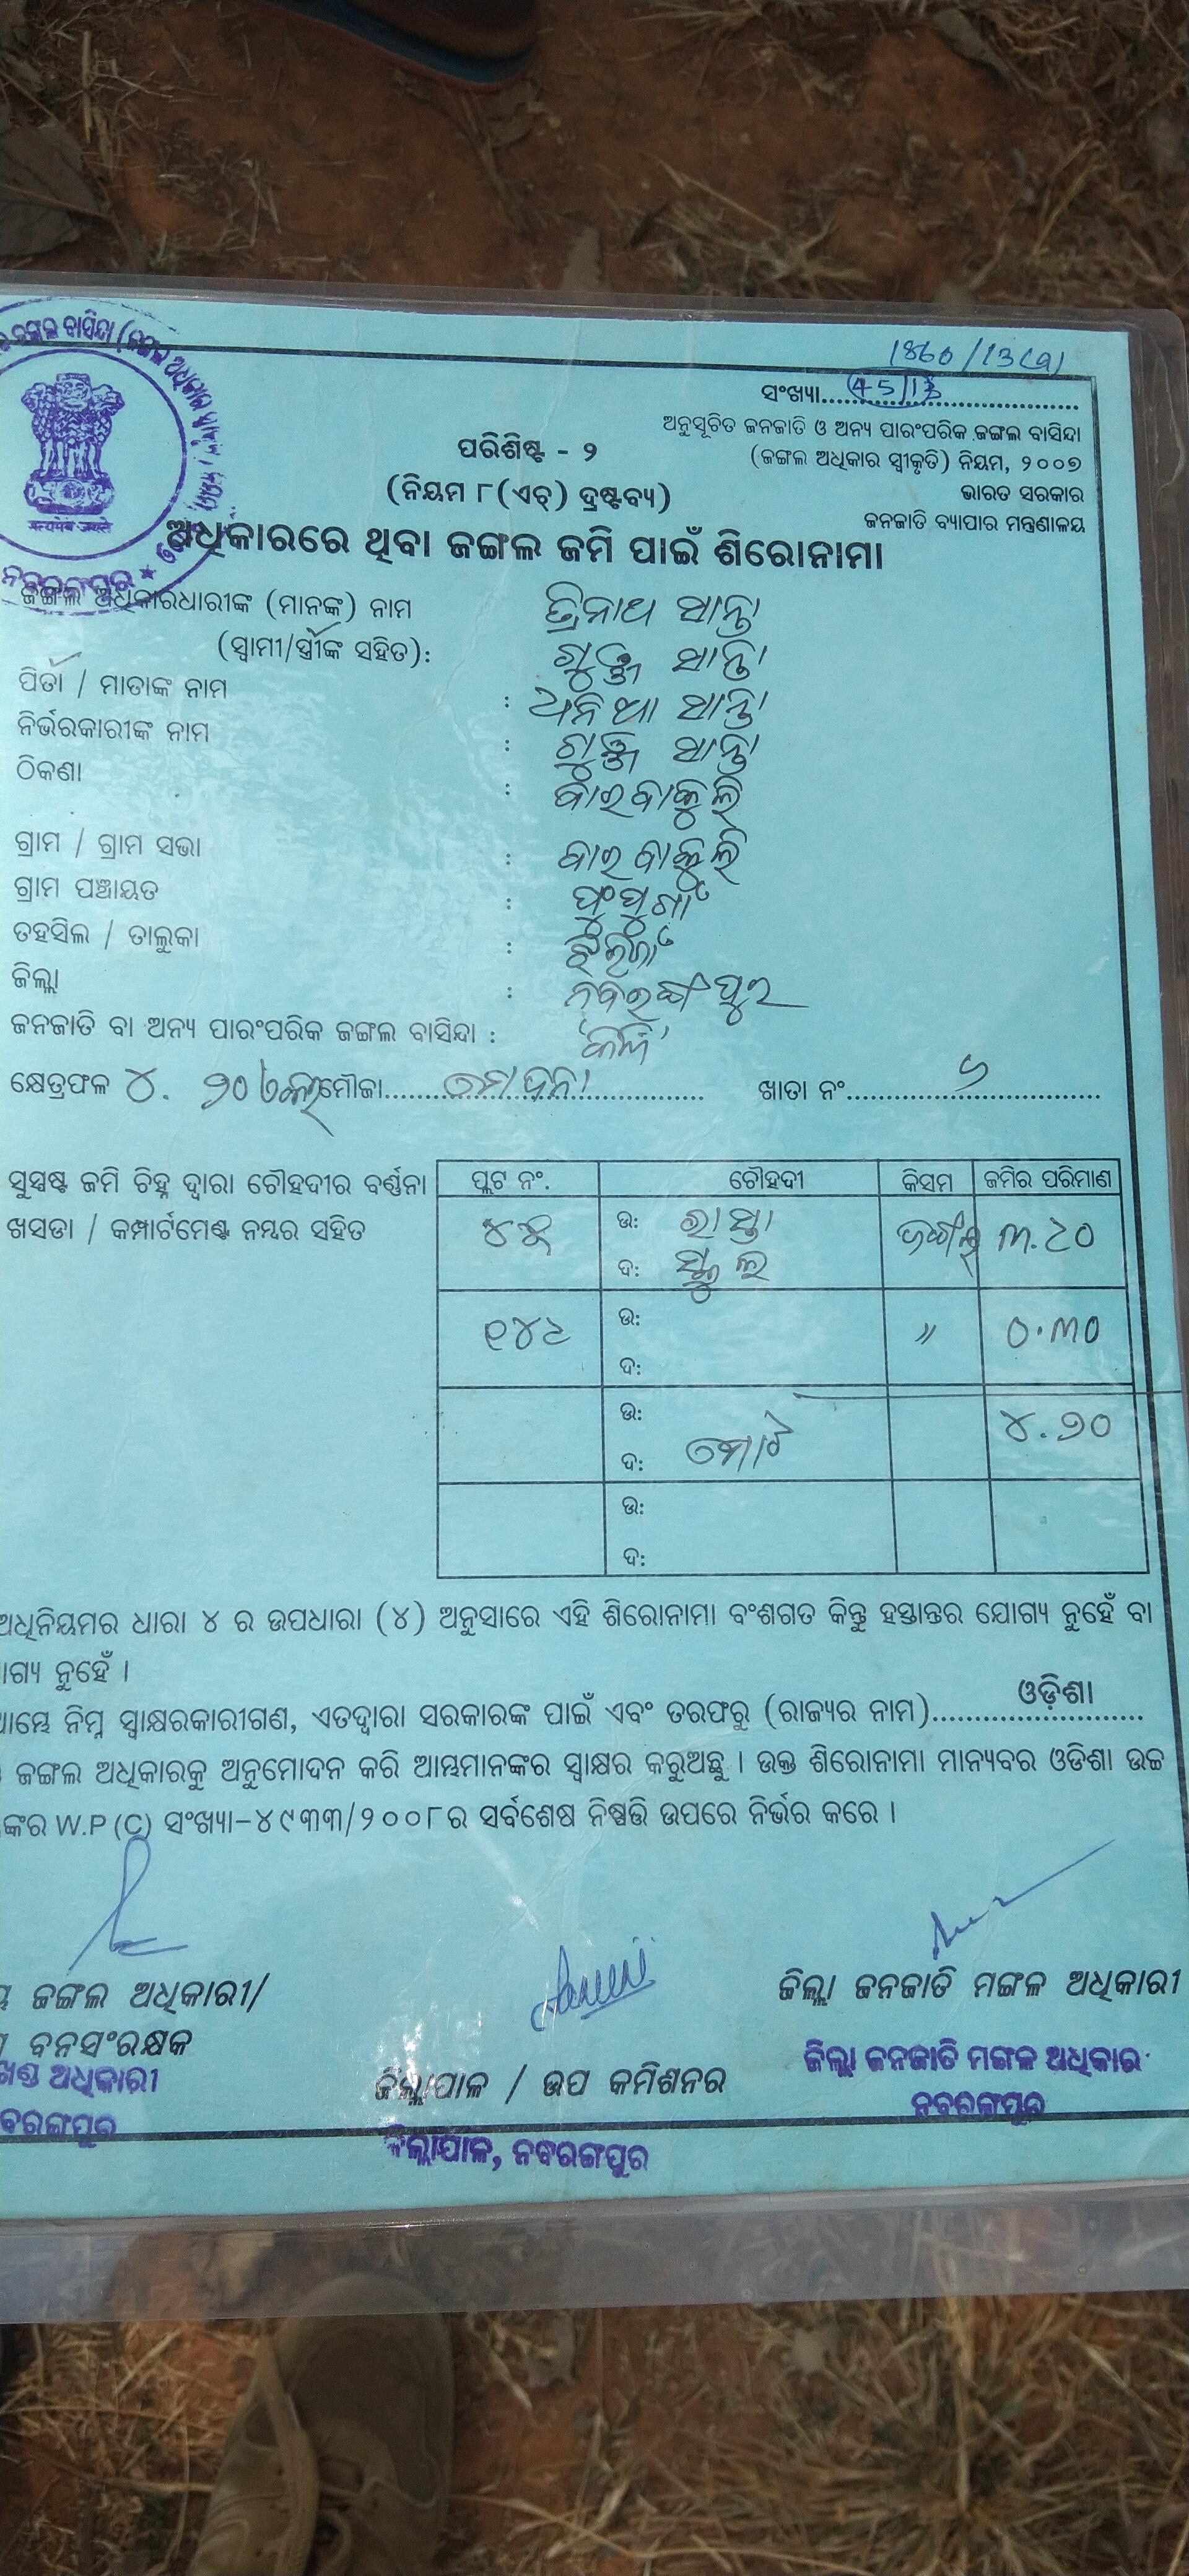 1860/13(a)
ସଂଖ୍ୟା..... 45/13
ଅନୁସୂଚିତ ଜନଜାତି ଓ ଅନ୍ୟ ପାରଂପରିକ ଜଙ୍ଗଲ ବାସିନ୍ଦା
(ଜଙ୍ଗଲ ଅଧିକାର ସ୍ୱୀକୃତି) ନିୟମ, ୨୦୦୭
ଭାରତ ସରକାର
ଜନଜାତି ବ୍ୟାପାର ମନ୍ତ୍ରଣାଳୟ
ପରିଶିଷ୍ଟ - ୨
(ନିୟମ ୮(ଏଚ୍) ଦ୍ରଷ୍ଟବ୍ୟ)
ଅଧିକାରରେ ଥିବା ଜଙ୍ଗଲ ଜମି ପାଇଁ ଶିରୋନାମା
ଜଙ୍ଗଲ ଅଧିକାରଧାରୀଙ୍କ (ମାନଙ୍କ) ନାମ ତ୍ରିନାଥ ସାନ୍ତା
(ସ୍ୱାମୀ/ସ୍ତ୍ରୀଙ୍କ ସହିତ): ସାନ୍ତା
ପିତା / ମାତାଙ୍କ ନାମ : ଧନିଆ ସାନ୍ତା
ନିର୍ଭରକାରୀଙ୍କ ନାମ : ସାନ୍ତା
ଠିକଣା : ବାଇବାକୁଲି
ଗ୍ରାମ / ଗ୍ରାମ ସଭା : ବାଇବାକୁଲି
ଗ୍ରାମ ପଞ୍ଚାୟତ :
ତହସିଲ / ତାଲୁକା : ଝରିଗାଁ
ଜିଲ୍ଲା : ନବରଙ୍ଗପୁର
ଜନଜାତି ବା ଅନ୍ୟ ପାରଂପରିକ ଜଙ୍ଗଲ ବାସିନ୍ଦା :
କ୍ଷେତ୍ରଫଳ ୪. ୨୦ ମୌଜା..... ଖାତା ନଂ.....
ସୁସ୍ପଷ୍ଟ ଜମି ଚିହ୍ନ ଦ୍ୱାରା ଚୌହଦୀର ବର୍ଣ୍ଣନା
ଖସଡା / କମ୍ପାର୍ଟମେଣ୍ଟ ନମ୍ବର ସହିତ
ପ୍ଲଟ ନଂ. ଚୌହଦୀ କିସମ ଜମିର ପରିମାଣ
ଉ: ରାସ୍ତା ଜଙ୍ଗଲ ୩.୯୦
ଦ: ସ୍କୁଲ
୧୪୯ ଉ: " ୦.୩୦
ଦ:
ଉ: ୪.୨୦
ଦ: ମୋଟ
ଉ:
ଦ:
ଅଧିନିୟମର ଧାରା ୪ ର ଉପଧାରା (୪) ଅନୁସାରେ ଏହି ଶିରୋନାମା ବଂଶଗତ କିନ୍ତୁ ହସ୍ତାନ୍ତର ଯୋଗ୍ୟ ନୁହେଁ ବା
ନୁହେଁ ।
ଆମ୍ଭେ ନିମ୍ନ ସ୍ୱାକ୍ଷରକାରୀଗଣ, ଏତଦ୍ୱାରା ସରକାରଙ୍କ ପାଇଁ ଏବଂ ତରଫରୁ (ରାଜ୍ୟର ନାମ)..... ଓଡ଼ିଶା
ଜଙ୍ଗଲ ଅଧିକାରକୁ ଅନୁମୋଦନ କରି ଆମ୍ଭମାନଙ୍କର ସ୍ୱାକ୍ଷର କରୁଅଛୁ । ଉକ୍ତ ଶିରୋନାମା ମାନ୍ୟବର ଓଡିଶା ଉଚ୍ଚ
W.P (C) ସଂଖ୍ୟା-୪୯୩୩/୨୦୦୮ର ସର୍ବଶେଷ ନିଷ୍ପତ୍ତି ଉପରେ ନିର୍ଭର କରେ ।
ଜଙ୍ଗଲ ଅଧିକାରୀ/
ବନସଂରକ୍ଷକ
ଅଧିକାରୀ
ନବରଙ୍ଗପୁର
ଜିଲ୍ଲାପାଳ / ଉପ କମିଶନର
ଜିଲ୍ଲାପାଳ, ନବରଙ୍ଗପୁର
ଜିଲ୍ଲା ଜନଜାତି ମଙ୍ଗଳ ଅଧିକାରୀ
ଜିଲ୍ଲା ଜନଜାତି ମଙ୍ଗଳ ଅଧିକାରୀ
ନବରଙ୍ଗପୁର